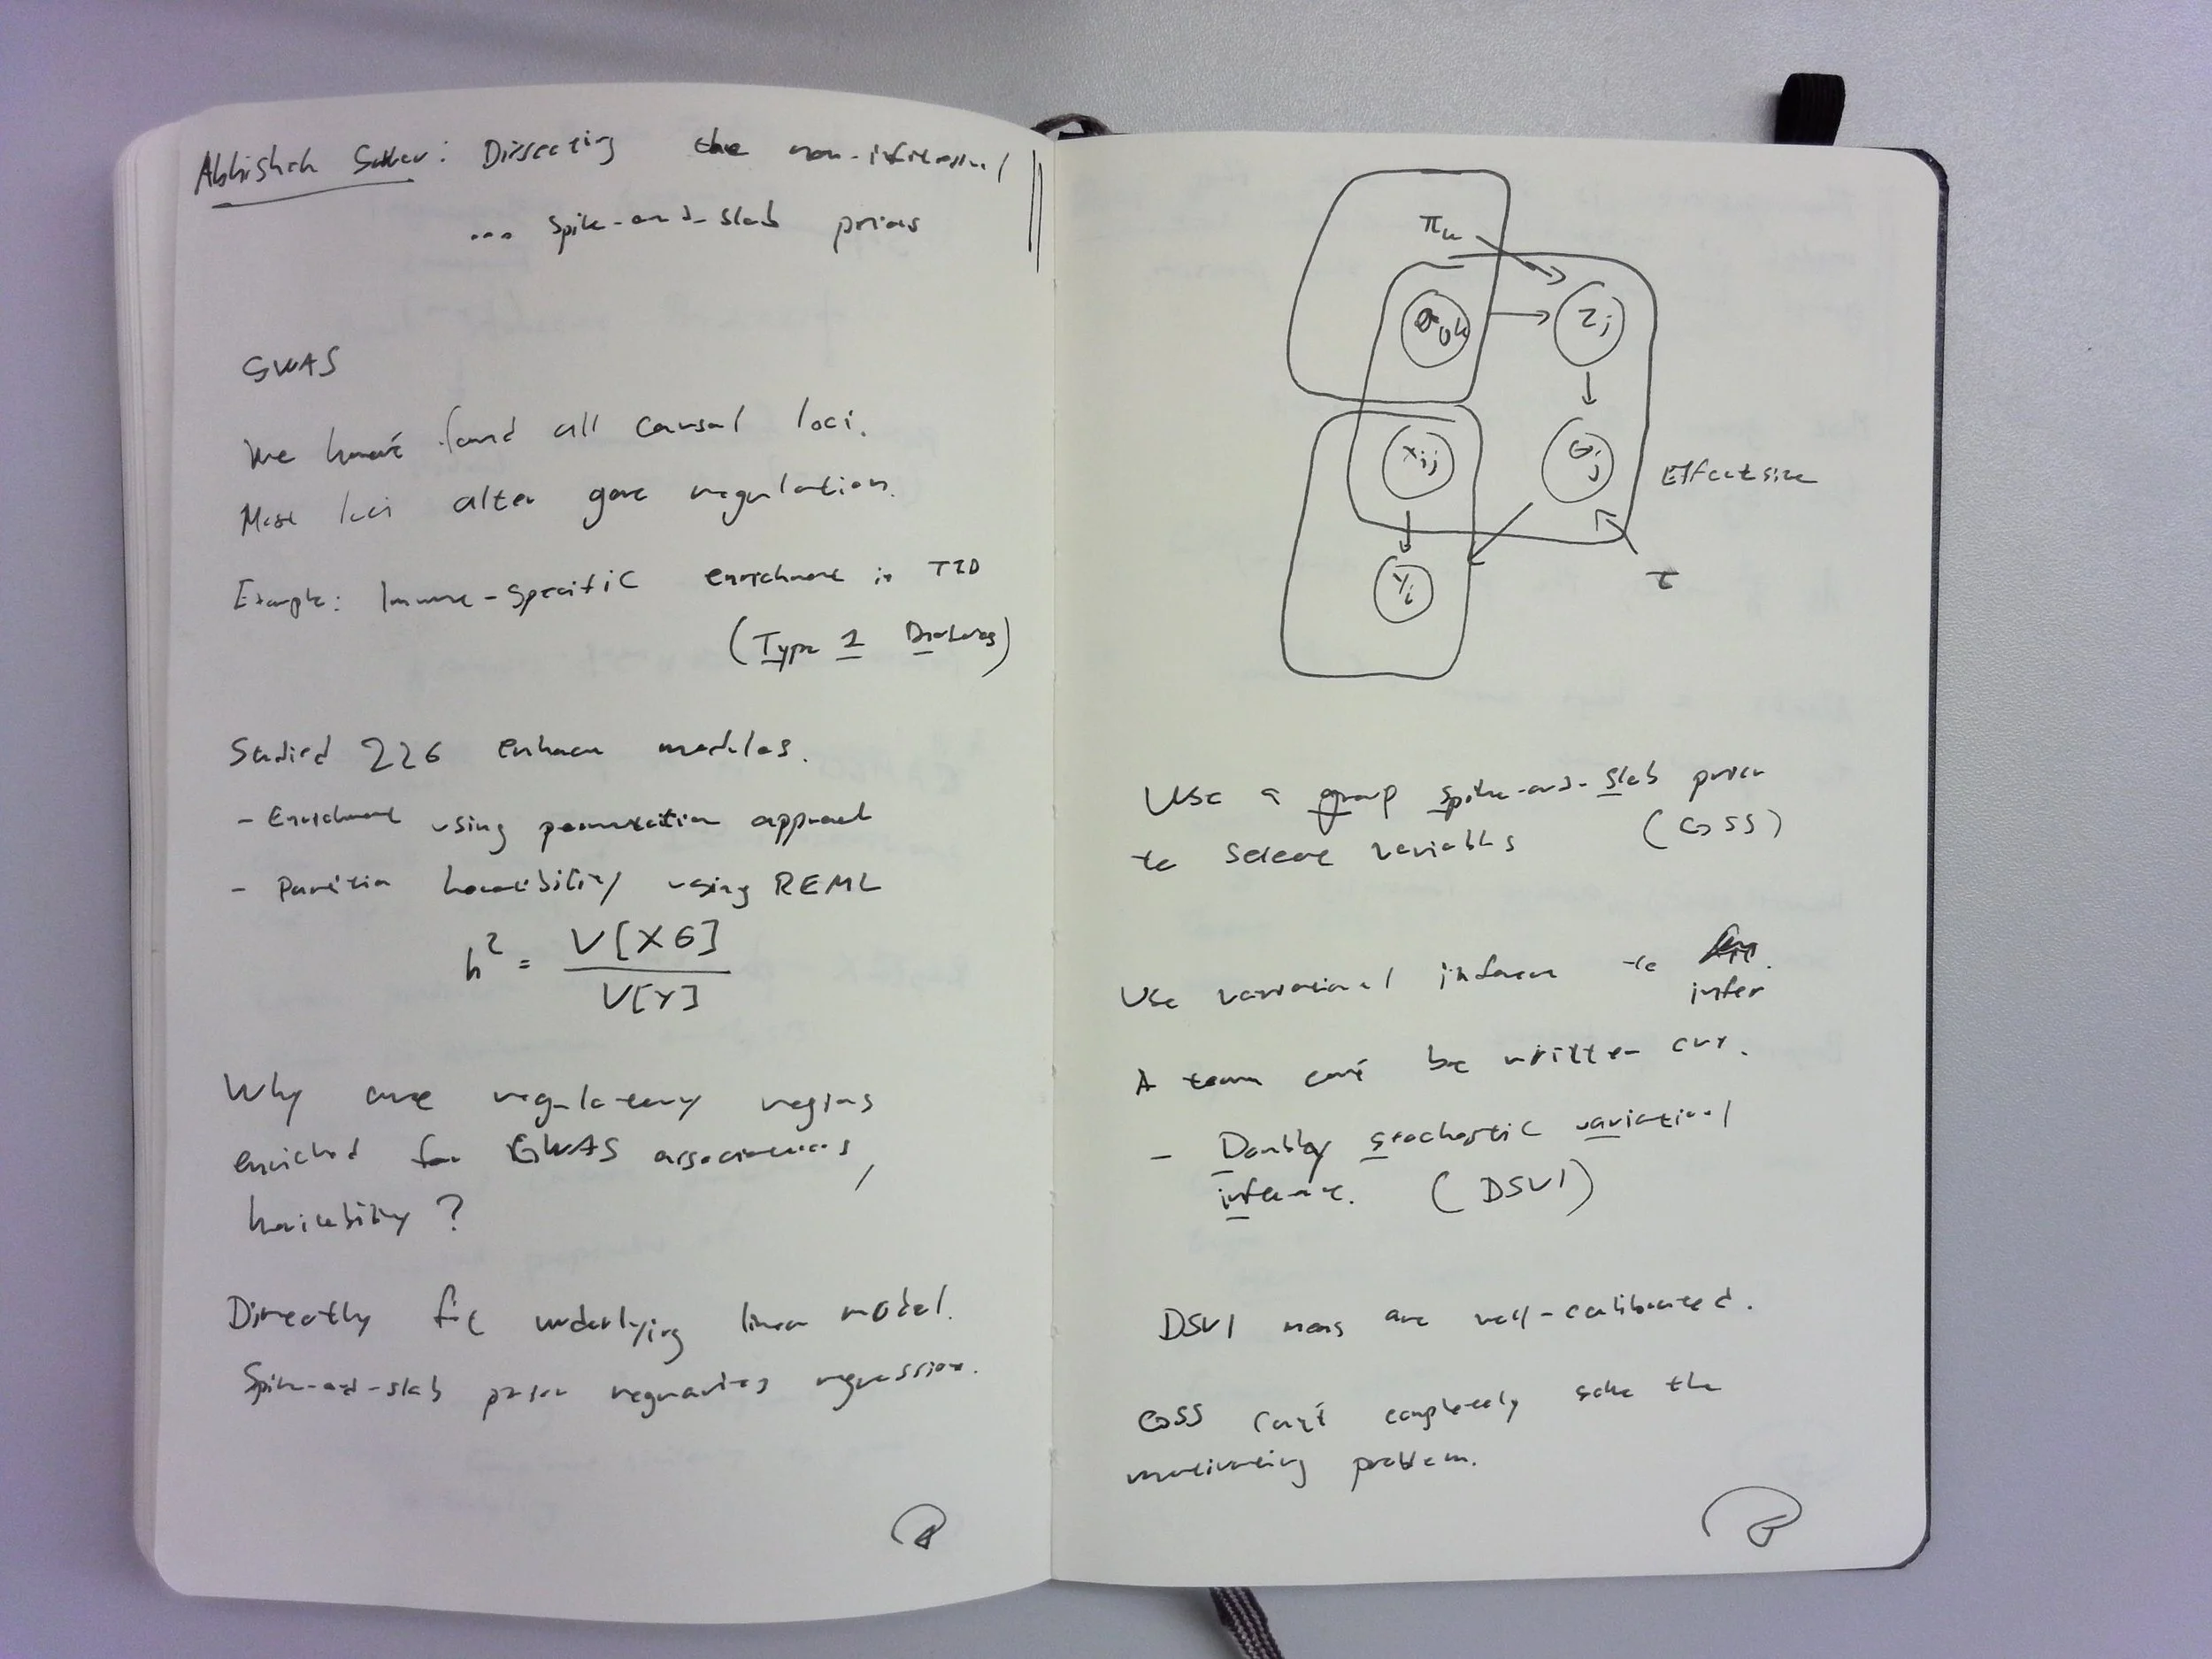 Abhishek Sarkar: Dissecting the non-infinitesimal
... spike-and-slab priors
GWAS
We haven't found all causal loci.
Most loci alter gene regulation.
Example: Immune-specific enrichment in T1D
(Type 1 Diabetes)
Studied 226 enhancer modules.
- Enrichment using permutation approach
- Partition heritability using REML
h² = V[Xθ] / V[Y]
Why are regulatory regions
enriched for GWAS associations,
heritability?
Directly fit underlying linear model.
Spike-and-slab prior regularizes regression.
πk
a jk
zj
xij
θj
Effect size
yi
τ
Use a group spike-and-slab prior
to select variables (GSS)
Use variational inference to
infer
A term can't be written out.
- Doubly stochastic variational
inference. (DSVI)
DSVI means are well-calibrated.
GSS can't completely solve the
motivating problem.